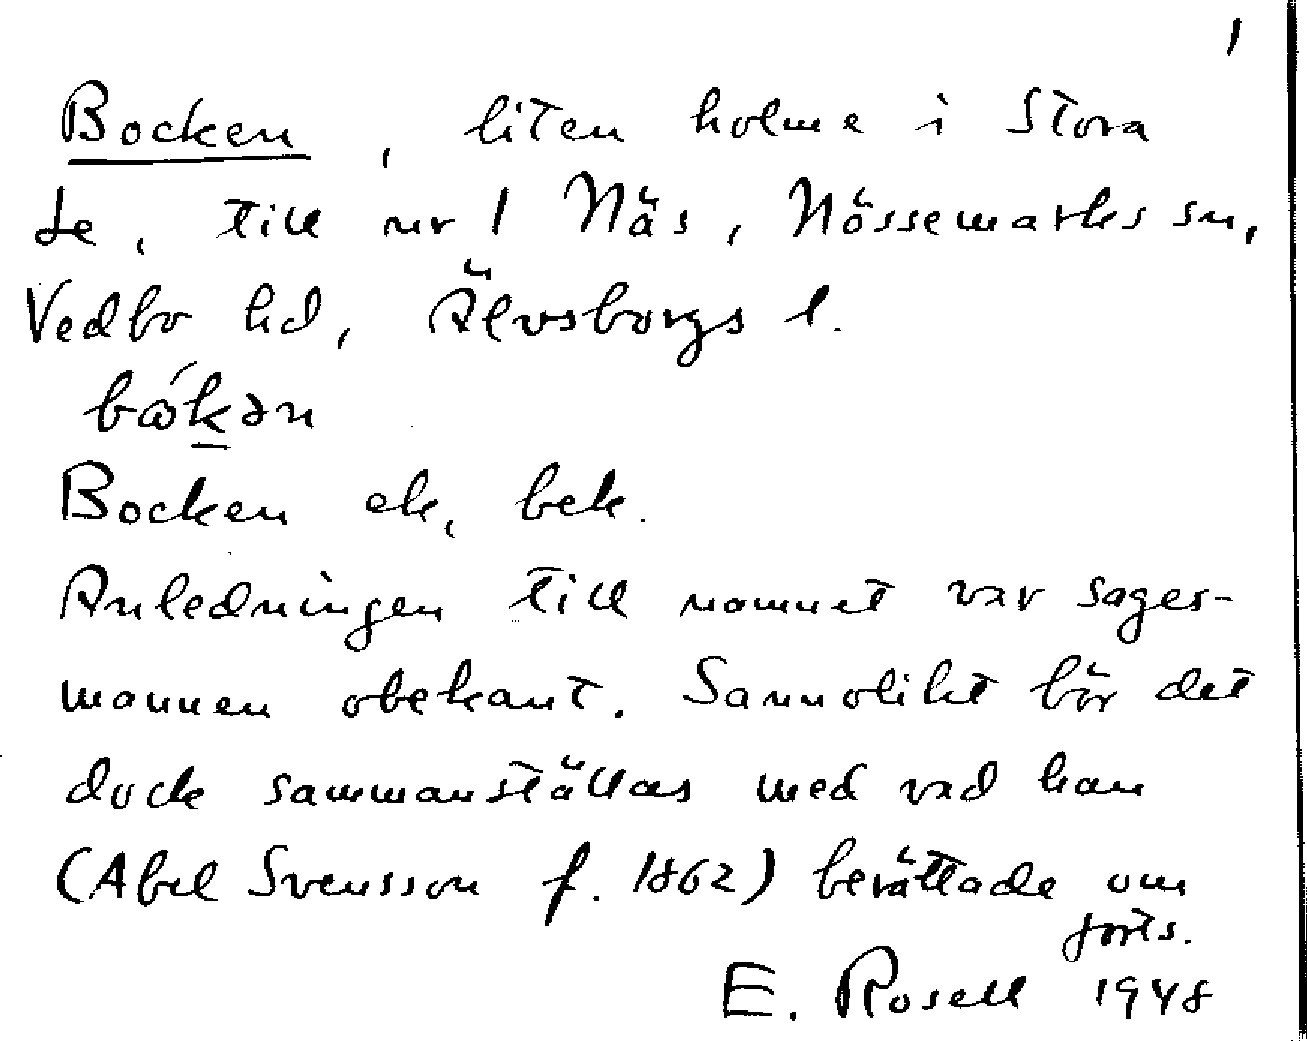 1
Bocken, liten holme i Stora
Le, till nr 1 Näs, Nössemarks sn,
Vedbo hd, Älvsborgs l.
Bocken ek, bek.
Anledningen till namnet var sages-
mannen obekant. Sannolikt bör det
dock sammanställas med vad han
(Abel Svensson f. 1862) berättade om
forts.
E. Rosell 1948